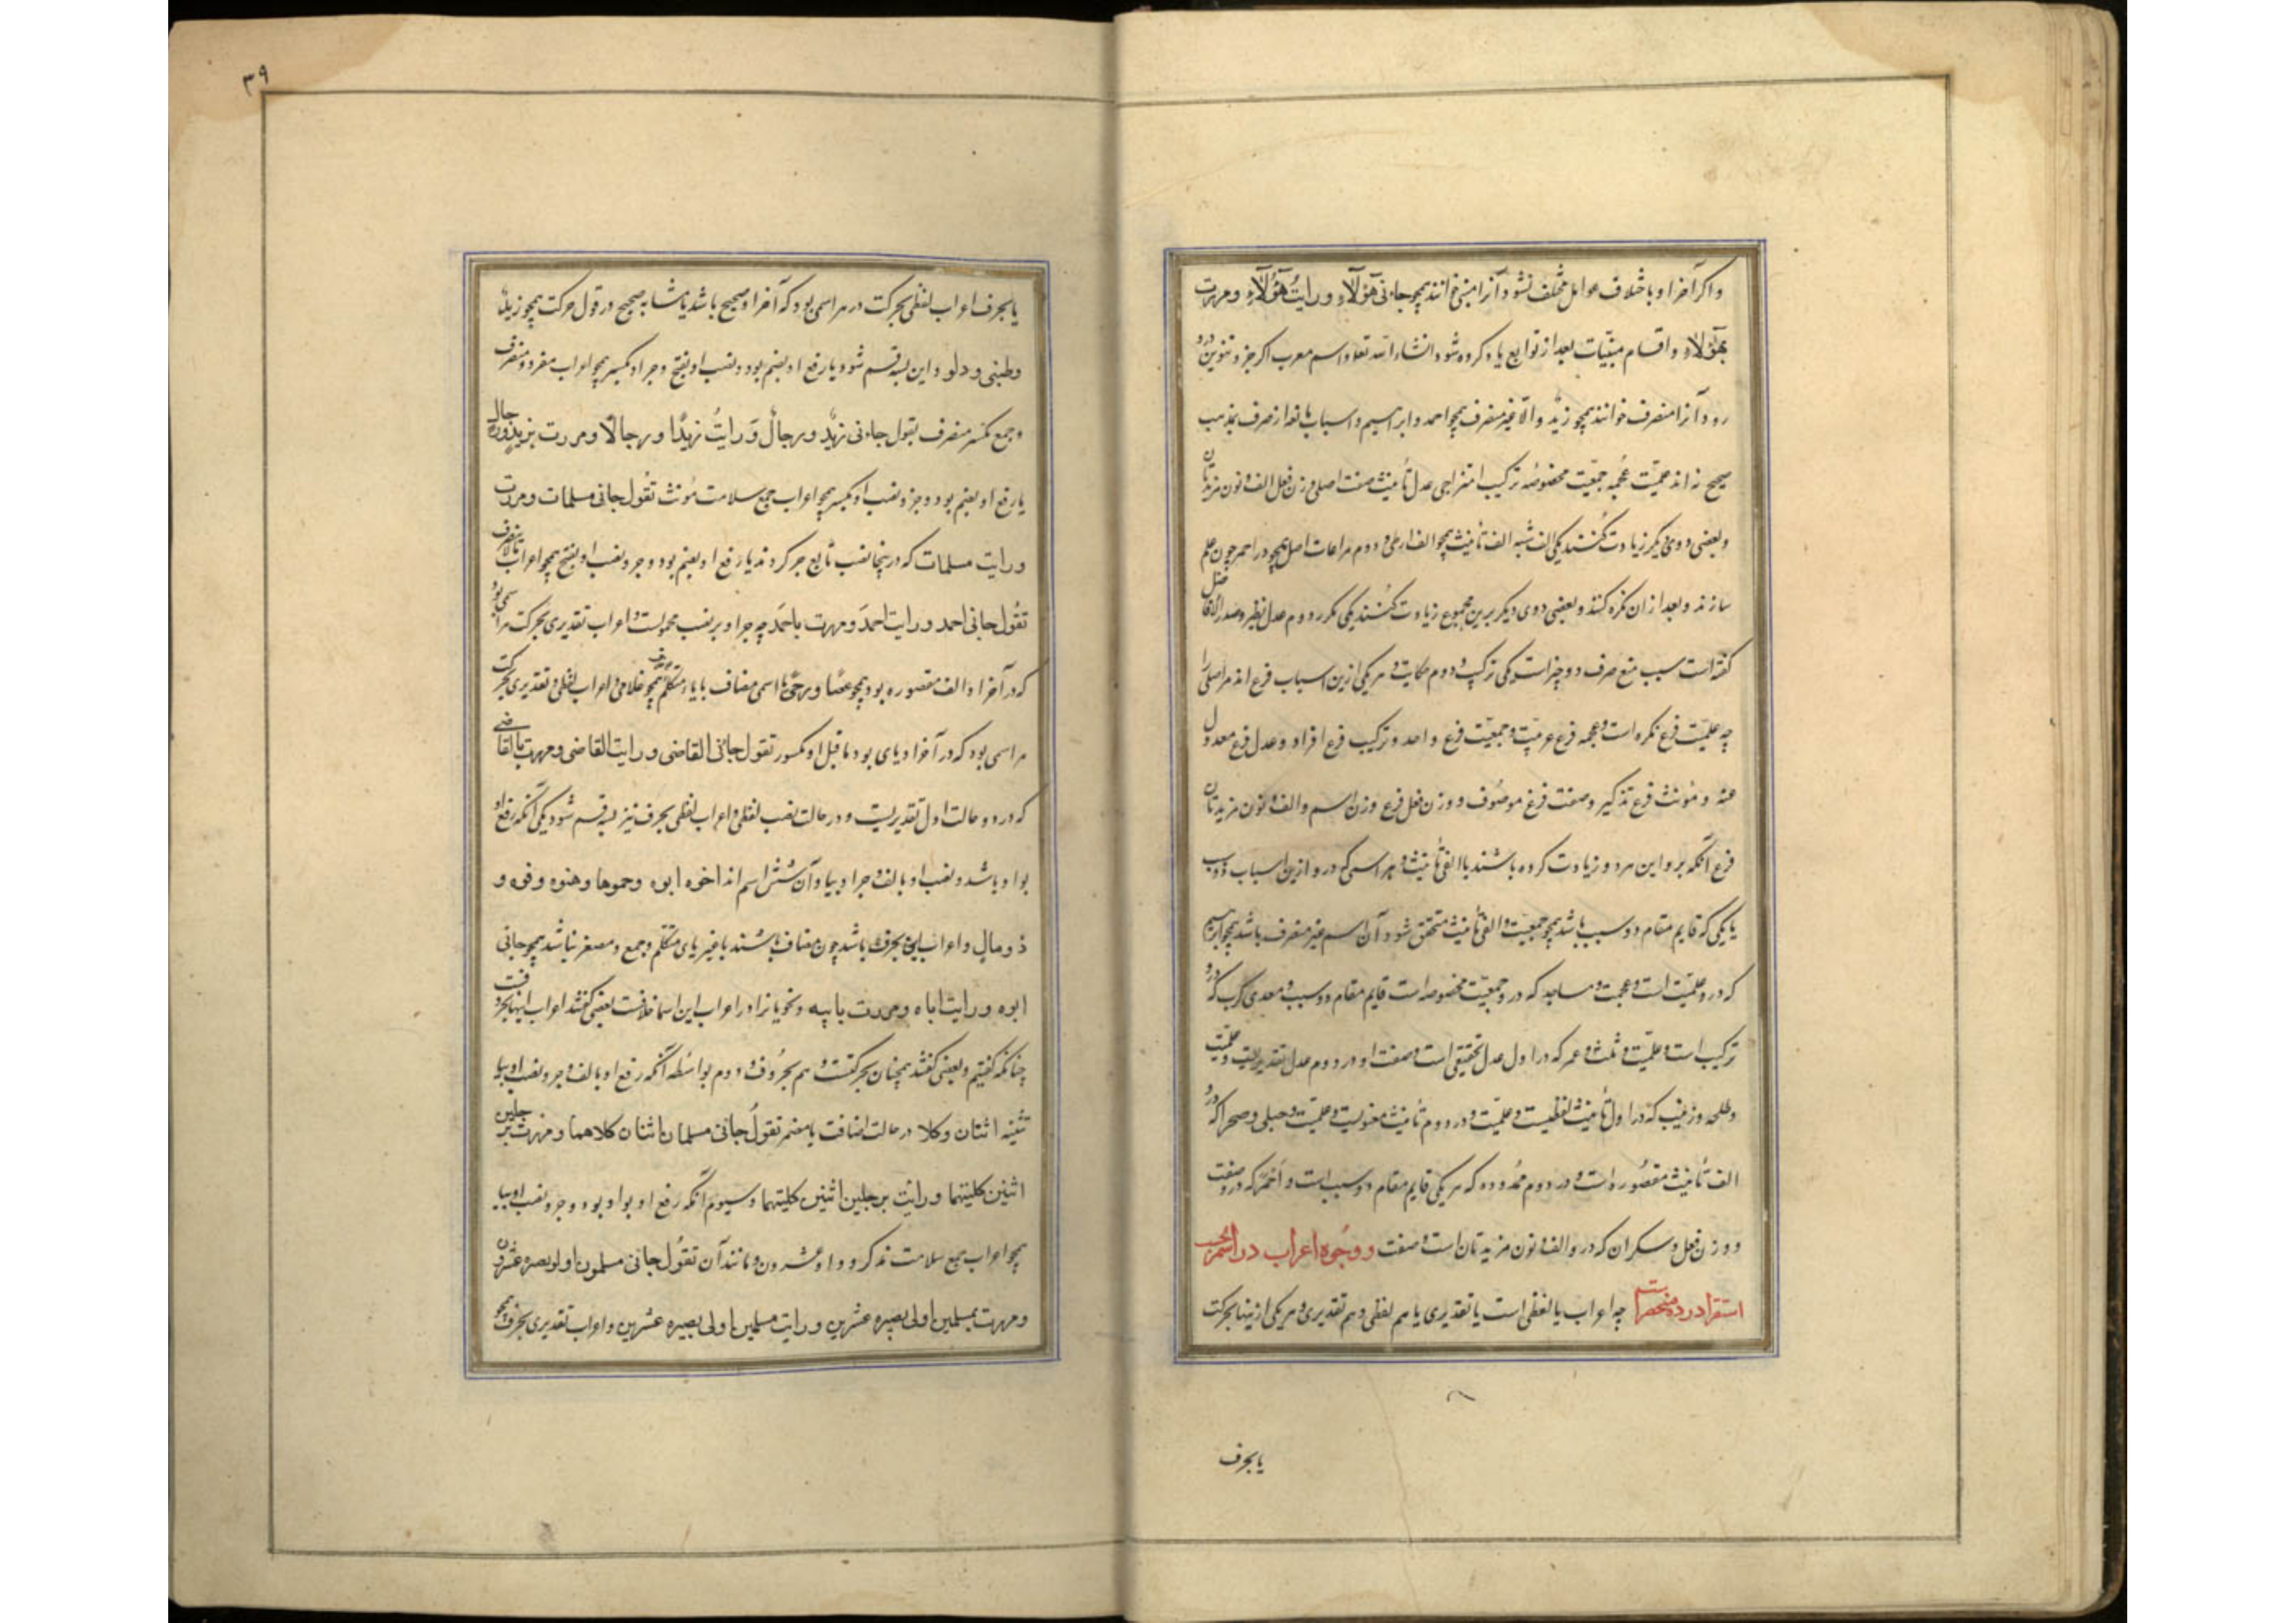 واکر آخر او باختلاف عوامل مختلف نشود آنرا مبنی خوانند همچو جاءنی هؤلاء و رایت هؤلاء و مررت
بهؤلاء و اقسام مبنیات بعد از توابع یاد کرده شود انشاء الله تعالی و اسم معرب اکر جر و تنوین درو
رود آنرا منصرف خوانند همچو زید و الا غیر منصرف همچو احمد و ابراهیم و اسباب مانعه از صرف بمذهب
صحیح نه اند علمیت عجمه جمعیت مخصوصه ترکیب امتزاجی عدل تأنیث صفت اصلی وزن فعل الف و نون مزیدتان
و بعضی دوی دیکر زیادت کنند یکی الف شبه الف تأنیث همچو الف ارطی و دوم مراعات اصل همچو در احمر چون علم
سازند و بعد از ان نکره کنند و بعضی دوی دیکر برین مجموع زیادت کنند یکی مکرر دوم عدل نظیر و صدر الافاضل
کفته است سبب منع صرف دو چیز است یکی ترکیب و دوم حکایت و هر یکی ازین اسباب فرع اند مر اصلی را
چه علمیت فرع نکره است و عجمه فرع عربیت و جمعیت فرع واحد و ترکیب فرع افراد و عدل فرع معدول
عنه و مؤنث فرع تذکیر و صفت فرع موصوف و وزن فعل فرع وزن اسم و الف و نون مزیدتان
فرع آنکه برو این هر دو زیادت کرده باشند یا الفی تأنیث و هر اسمی که درو ازین اسباب دو سبب
یا یکی که قایم مقام دو سبب باشد همچو جمعیت و الفی تأنیث متحقق شود آن اسم غیر منصرف باشد همچو ابراهیم
که درو علمیت است و عجمت و مساجد که درو جمعیت مخصوصه است قایم مقام دو سبب و معدی کرب که درو
ترکیب است و علمیت و ثلث و عمر که در اول عدل تحقیقی است و صفت و در دوم عدل تقدیریست و علمیت
و طلحه و زینب که در اول تأنیث لفظیست و علمیت و در دوم تأنیث معنویست و علمیت و حبلی و صحرا که درو
الف تأنیث مقصوره است و در دوم ممدوده که هر یکی قایم مقام دو سبب است و احمر که درو صفت
و وزن فعل و سکران که درو الف و نون مزیدتان است و صفت و وجوه اعراب در اسم بحسب
استقرا در ده منحصر است چه اعراب یا لفظی است یا تقدیری یا هم لفظی و هم تقدیری و هر یکی ازینها بحرکت
یا بحرف
٣٩
یا بحرف اعراب لفظی بحرکت در هر اسمی بود که آخر او صحیح باشد یا مشابه صحیح در قبول حرکت همچو زید
و ظبی و دلو و این بسه قسم شود یا رفع او بضم بود و نصب او بفتح و جر او بکسر همچو اعراب مفرد منصرف
و جمع مکسر منصرف تقول جاءنی زید و رجال و رایت زیدا و رجالا و مررت بزید و رجال
یا رفع او بضم بود و جر و نصب او بکسر همچو اعراب جمع سلامت مؤنث تقول جانی مسلمات و مررت
و رایت مسلمات که درینجا نصب تابع جر کردند یا رفع او بضم بود و جر و نصب او بفتح همچو اعراب مالا ینصرف
تقول جانی احمد و رایت احمد و مررت باحمد چه جر او بر نصب محمولست و اعراب تقدیری بحرکت در اسمی بود
که در آخر او الف مقصوره بود همچو عصا و رحی یا اسمی مضاف بایاء متکلم همچو غلامی و اعراب لفظی و تقدیری بحرکت
در اسمی بود که در آخر او یای بود ماقبل او مکسور تقول جانی القاضی و رایت القاضی و مررت بالقاضی
که در دو حالت اول تقدیریست و در حالت نصب لفظی و اعراب لفظی بحرف نیز بسه قسم شود یکی آنکه رفع او
بواو باشد و نصب او بالف و جر او بیا و آن شش اسم اند اخوه ابوه و حموها و هنوه و فوه و
ذو مال و اعراب این بحرف باشد چون مضاف باشند با غیر یای متکلم و جمع و مصغر نباشد همچو جانی
ابوه و رایت اباه و مررت بابیه و نحویانرا در اعراب این اسما خلافست بعضی کفتند اعراب اینها بحرفست
چنانکه کفتیم و بعضی کفتند همچنان بحرکتست و هم بحروف و دوم بواسطه آنکه رفع او بالف و جر و نصب او بیا
تثنیه اثنان و کلا در حالت اضافت با مضمر تقول جانی مسلمان اثنان کلاهما و مررت برجلین
اثنین کلیهما و رایت رجلین اثنین کلیهما و سیوم آنکه رفع او بواو بود و جر و نصب او بیا
همچو اعراب جمع سلامت مذکر و اولو و عشرون و مانند آن تقول جانی مسلمون اولو بصره عشرون
و مررت بمسلمین اولی بصیره عشرین و رایت مسلمین اولی بصیره عشرین و اعراب تقدیری بحرف همچو